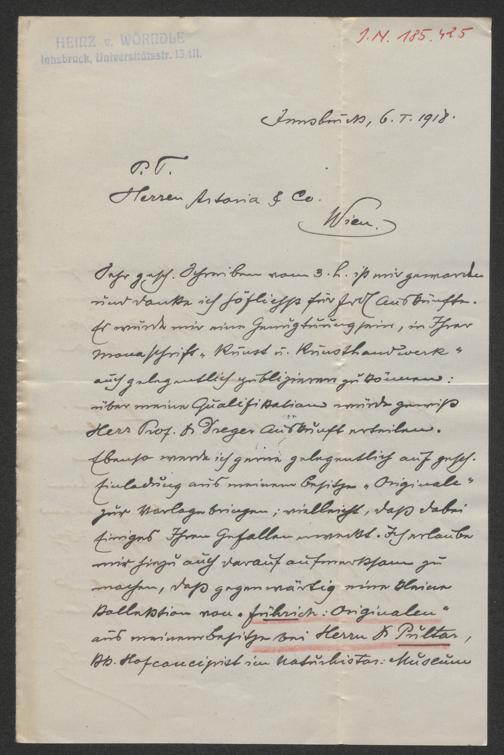 HEINZ v. WÖRNDLE
Innsbruck, Universitätsstr. 13/III.
I.N. 185.425
Innsbruck, 6. I. 1918.
P. T.
Herren Artaria & Co.
Wien.
Sehr gesch. Schreiben vom 3. h. ist mir geworden
und danke ich höflichst für frdl Auskünfte.
Es würde mir eine Genugtuung sein, in Ihrer
Monaschrift „Kunst u. Kunsthandwerk"
auch gelegentlich publizieren zu können:
über meine Qualifikation würde gewiß
Herr Prof. Dr Dreger Auskunft erteilen.
Ebenso werde ich gerne gelegentlich auf gesch.
Einladung aus meinem Besitze „Originale"
zur Vorlage bringen; vielleicht, daß dabei
Einiges Ihren Gefallen erweckt. Ich erlaube
mir hiezu auch darauf aufmerksam zu
machen, daß gegenwärtig eine kleine
Kollektion von „Führich: Originalen"
aus meinem Besitze bei Herrn Dr Pultar,
kk. Hofconcipist im Naturhistor: Museum